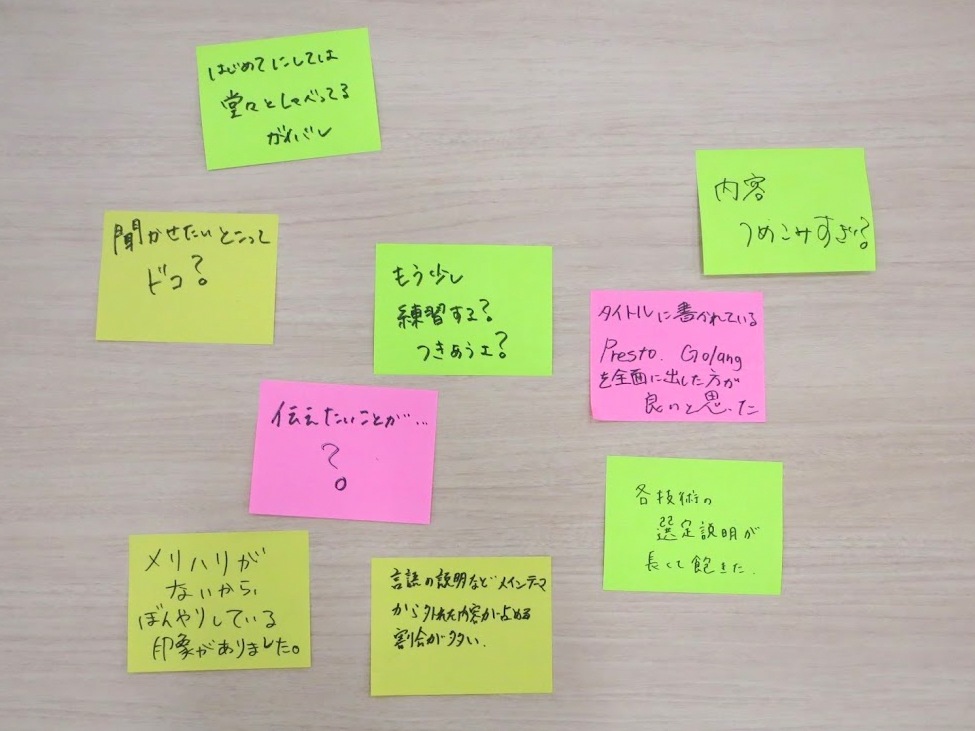 はじめてにしては
堂々としゃべってる
ガンバレ
内容
つめこみすぎ?
聞かせたいとこって
ドコ?
もう少し
練習する?
つきあうよ?
タイトルに書かれている
Presto. Golang
を全面に出した方が
良いと思った
伝えたいことが…
?
各技術の
選定説明が
長くて飽きた.
メリハリが
ないから,
ぼんやりしている
印象がありました。
言語の説明などメインテーマ
から外れた内容が占める
割合が多い.